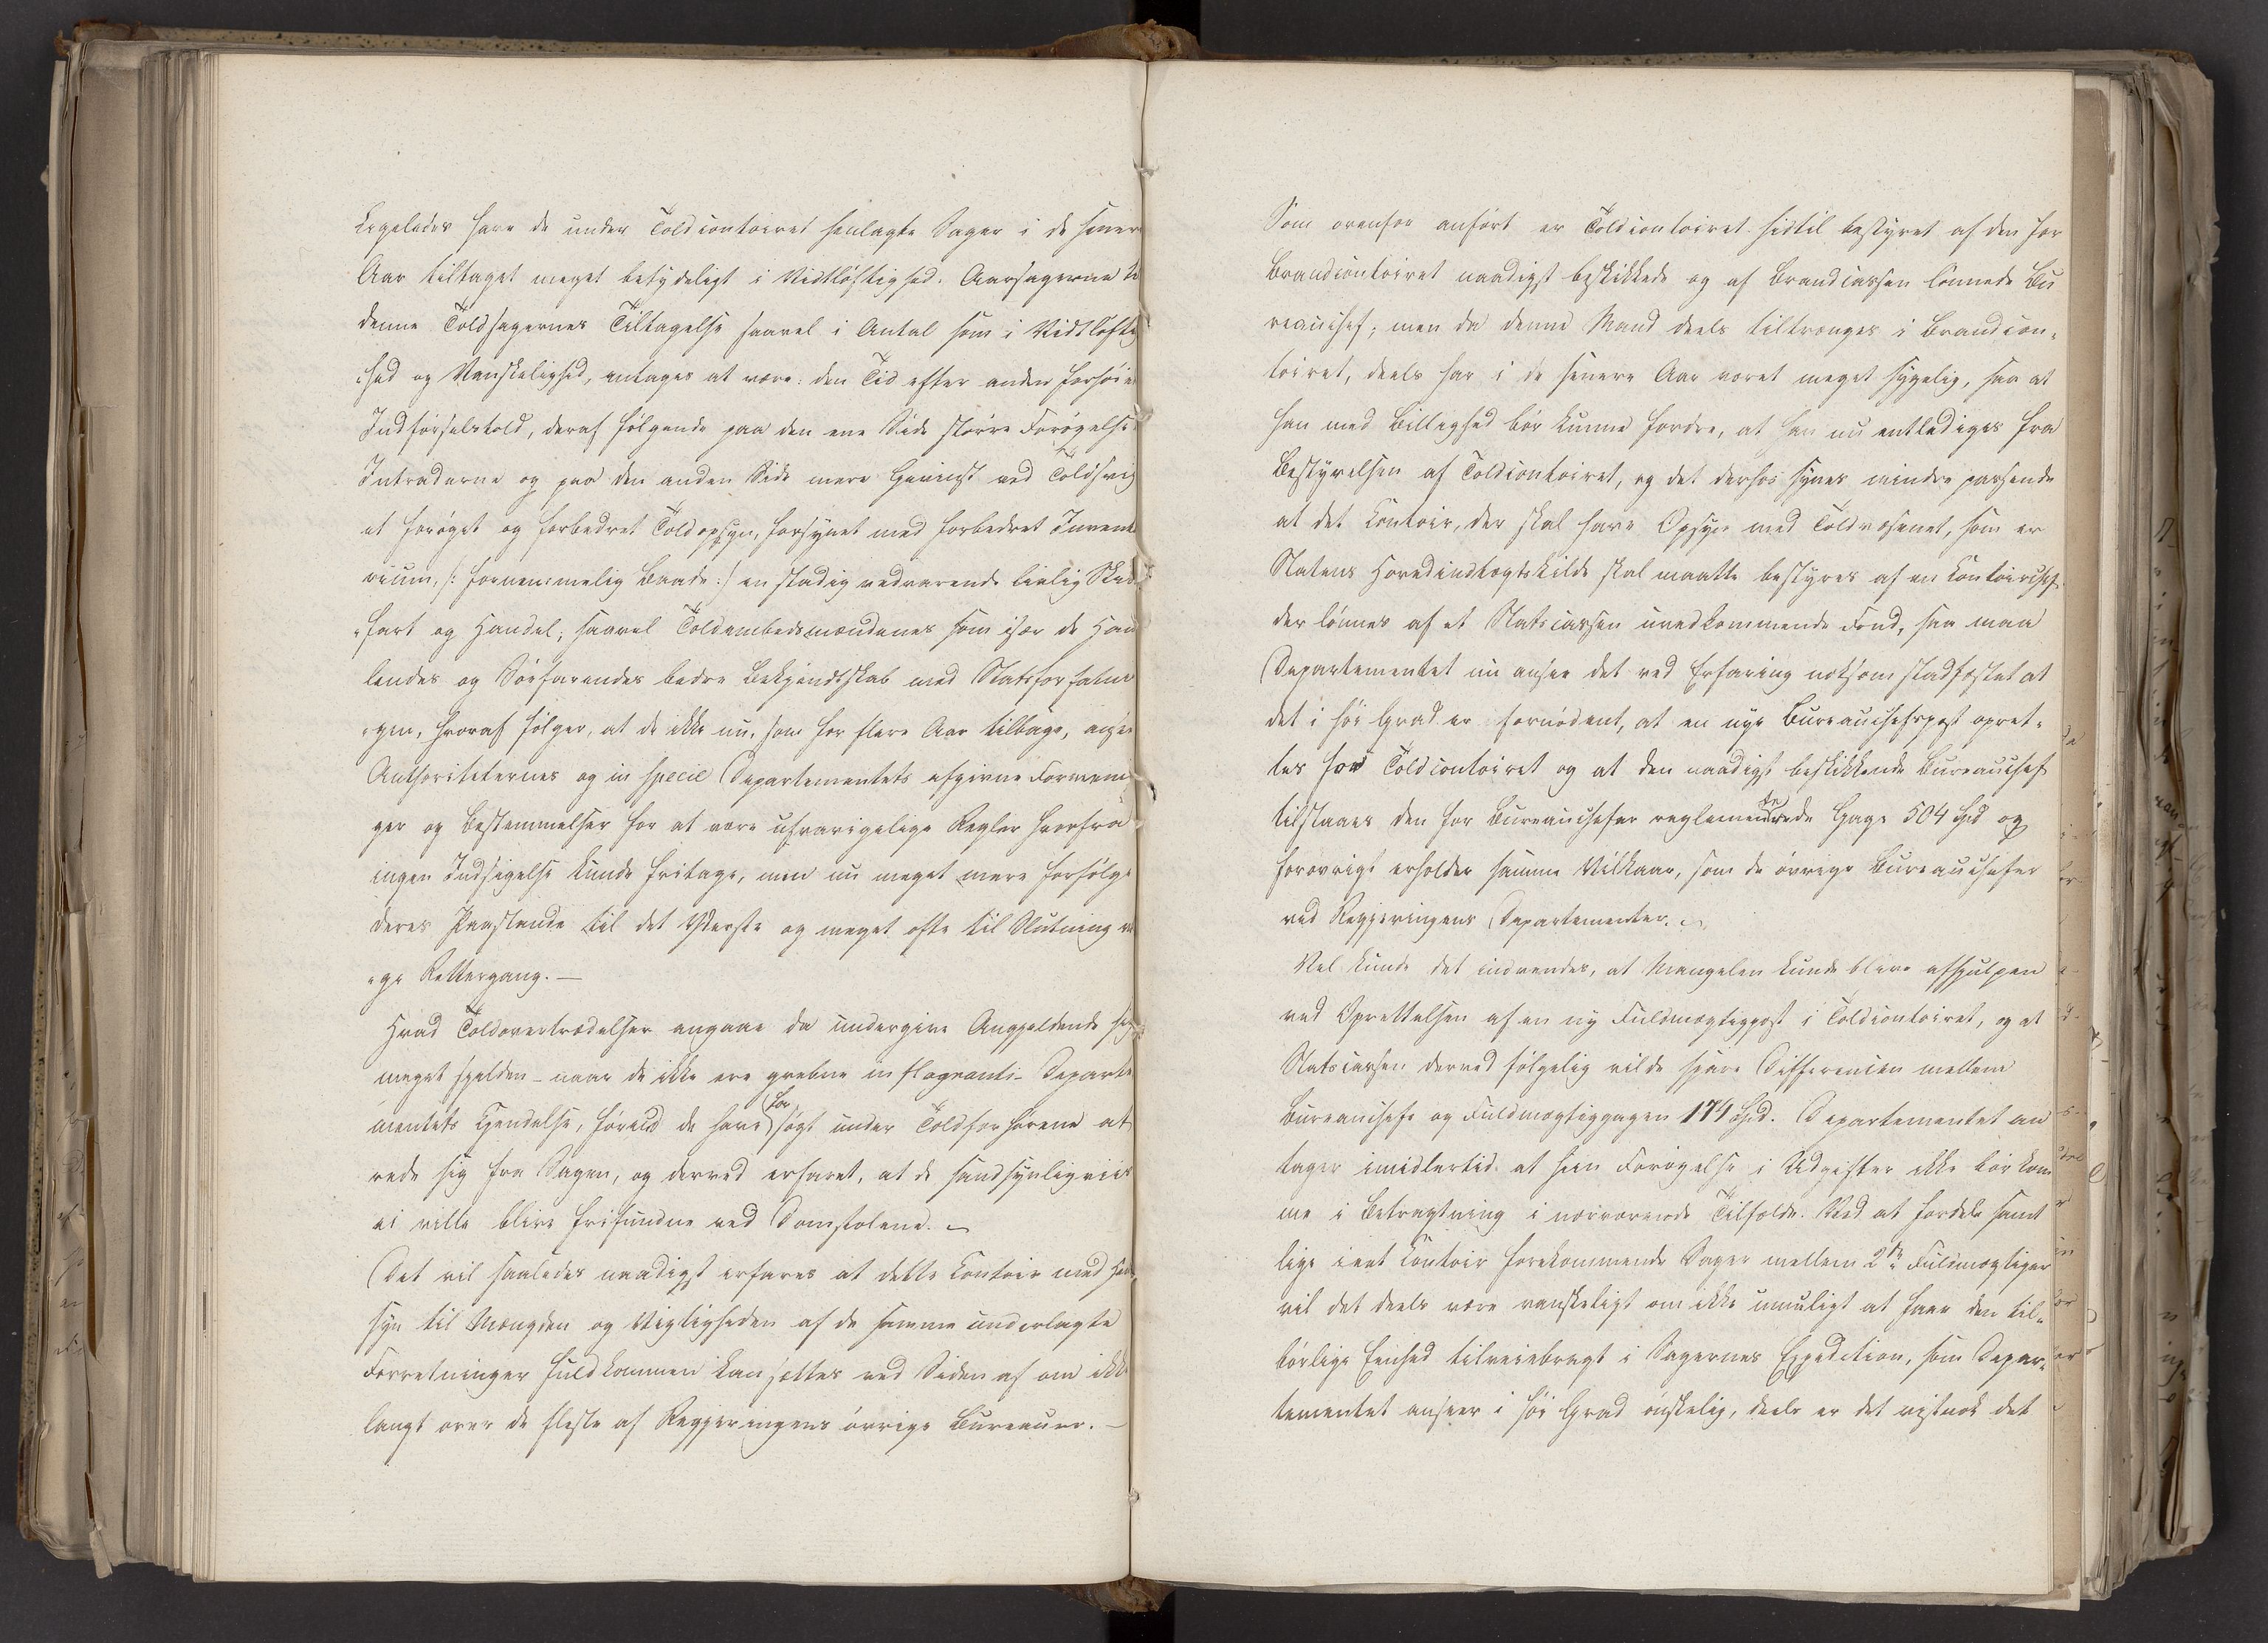 Ligeledes have de under Toldcontoiret henlagte Sager i de senere
Aar tiltaget meget betydeligt i Vidtløftighed. Aarsagerne te
denne Toldsagernes Tiltagelse saavel i Antal som i Vidtløftig
hed og Vanskelighed, antages at være: den Tid efter anden forhøie
Indførselstold, deraf følgende paa den ene Side større Forøgelse
Intraderne og paa den anden Side mere Gevinst ved Toldsvig
et forøget og forbedret Toldopsyn, forsynet med forbedret Invent
rium, /: fornemmelig Baade :/ en stadig vedvarende livlig Skib
"fart og Handel; saavel Toldembedsmændenes som især de Han
lendes og Søefarendes bedre Bekjendtskab med Statsforfatni
"gen, hvoraf følger, at de ikke nu, som for flere Aar tilbage, ansee
Authoriteternes og in specie Departementets afgivne Formeni
ger og Bestemmelser for at være ufravigelige Regler hvorfra
ingen Indsigelse kunde fritage, men nu meget mere forfølge
deres Paastande til det Yderste og meget ofte til Slutning ve
"ge Rettergang. —
Hvad Toldovertrædelser angaae da undergive Angjeldende sig
meget sjelden - naar de ikke ere grebne in flagranti - Departe
mentets Kjendelse, førend de have forsøgt under Toldforhørene at
rede sig fra Sagen, og derved erfaret, at de sandsynligviis
ei ville blive frifundne ved Domstolene. —
Det vil saaledes naadigst erfares at dette Contoir med Hen
syn til Mængden og Vigtigheden af de samme underlagte
Forretninger fuldkommen kan sættes ved Siden af om ikke
langt over de fleste af Regjeringens øvrige Bureauer. —
Som ovenfor anført er Toldcontoiret hidtil bestyret af den for
Brandcontoiret naadigst beskikkede og af Brandcassen lønnede Bu
reauchef; men da denne Mand deels tiltrænges i Brandcon¬
toiret, deels har i de senere Aar været meget sygelig, saa at
han med Billighed bør kunne fordre, at han nu entlediges fra
Bestyrelsen af Toldcontoiret, og det derhos synes mindre passende
at det Contoir, der skal have Opsyn med Toldvæsenet, som er
Statens Hovedindtægtskilde skal maatte bestyres af en Contoirchef
der lønnes af et Statscassen uvedkommende Fond, saa maa
Departementet nu ansee det ved Erfaring noksom stadfæstet at
det i høi Grad er fornødent, at en nye Bureauchefspost opret¬
tes for Toldcontoiret og at den naadigst beskikkende Bureauchef
tilstaaes den for Bureauchefer reglementerede Gage 504 Spd og
forøvrigt erholder samme Vilkaar, som de øvrige Bureauchefer
ved Regjeringens Departementer. —
Vel kunde det indvendes, at Mangelen kunde blive afhjulpen
ved Oprettelsen af en ny Fuldmægtigpost i Toldcontoiret, og at
Statscassen derved følgelig vilde spare Differencen mellem
Bureauchefs og Fuldmægtiggagen 174 Spd. Departementet an
tager imidlertid at hiin Forøgelse i Udgifter ikke bør kom
me i Betragtning i nærværende Tilfælde. Ved at fordele samt
lige i eet Contoir forekommende Sager mellem 2de Fuldmægtiger
vil det deels være vanskeligt om ikke umuligt at faae den til¬
børlige Eenhed tilveiebragt i Sagernes Expedition, som Depar¬
tementet anseer i høi Grad ønskelig, deels er det vistnok det